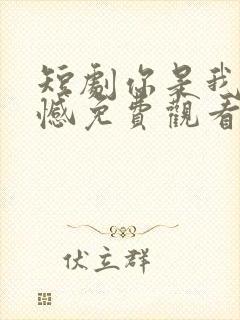 短劇你是我
憾免費觀看
伏立群